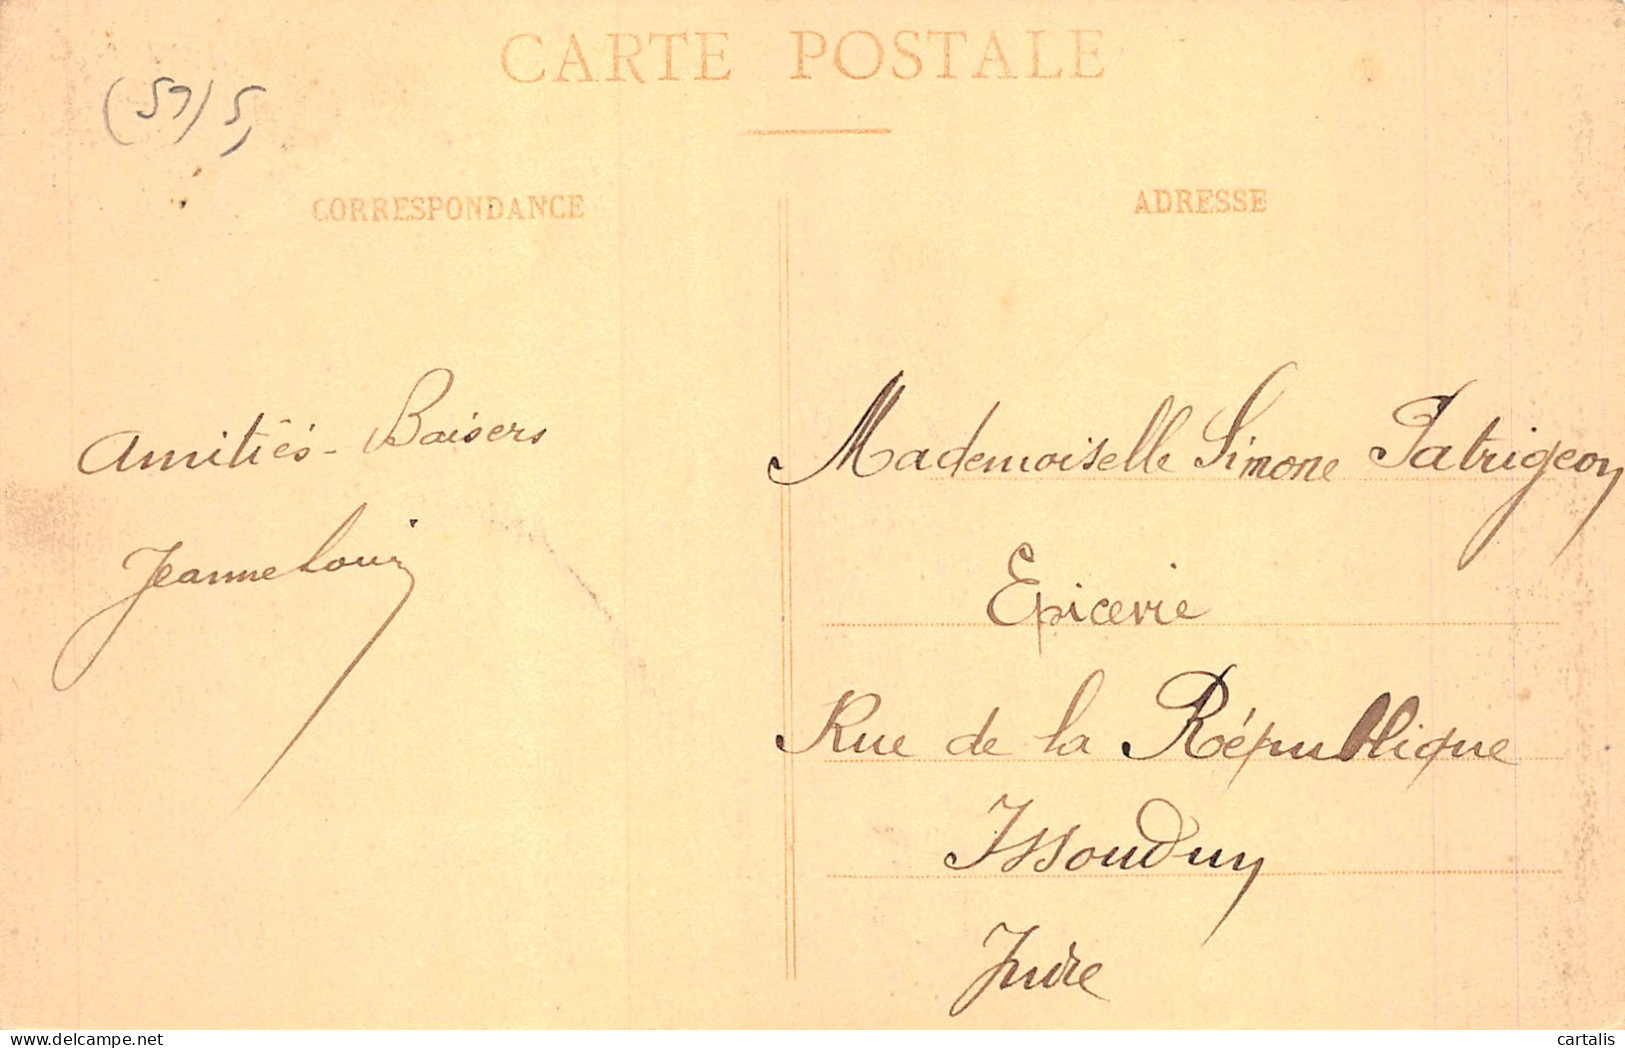 CARTE POSTALE
(51) 5,
CORRESPONDANCE
ADRESSE
Amitiés - Baisers
Jeanne Louis
Mademoiselle Simone Patrigeon
Epicerie
Rue de la République
Issoudun
Indre
www.delcampe.net
cartalis